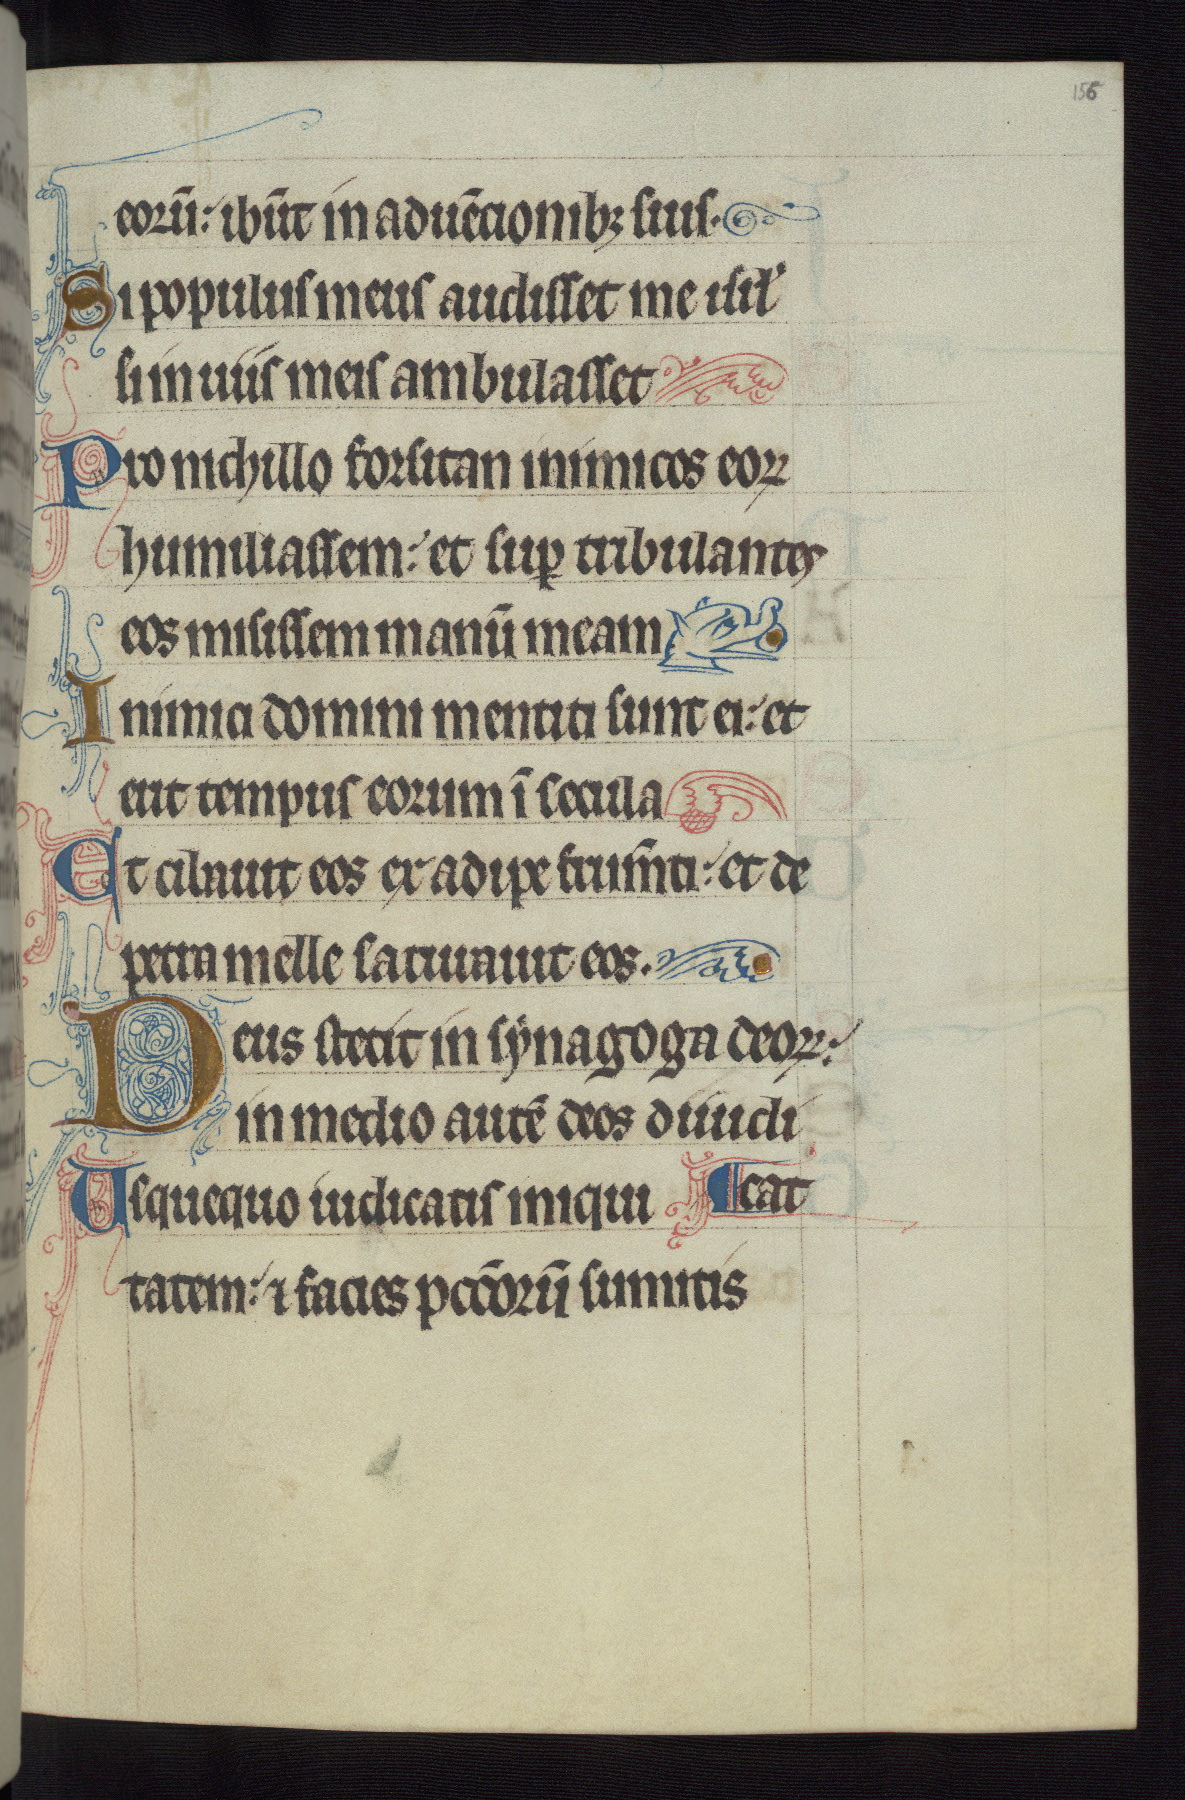 156
eorū: ibūt in aduēcionibꝫ suis.
Si populus meus audisset me isrl̕
si in uiis meis ambulasset
Pro nichillo forsitan inimicos eoꝝ
humiliassem: et suꝑ tribulantes
eos misissem manū meam
Inimici domini mentiti sunt ei: et
erit tempus eorum ī secula
Et cibauit eos ex adipe frum̄ti: et de
petra melle saturauit eos.
Deus stetit in synagoga deoꝝ:
in medio autē deos diiudi
Usquequo iudicatis iniqui ¶cat
tatem: ⁊ facies pcc̄orū sumitis